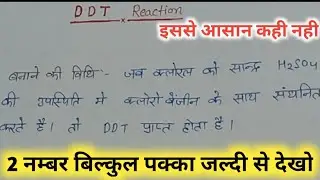 DDT Reaction
इससे आसान कही नही
बनाने की विधि :- जब क्लोरल को सान्द्र H2SO4
की उपस्थिति मे क्लोरोबेंजीन के साथ संघनित
करते है। तो DDT प्राप्त होता है।
2 नम्बर बिल्कुल पक्का जल्दी से देखो